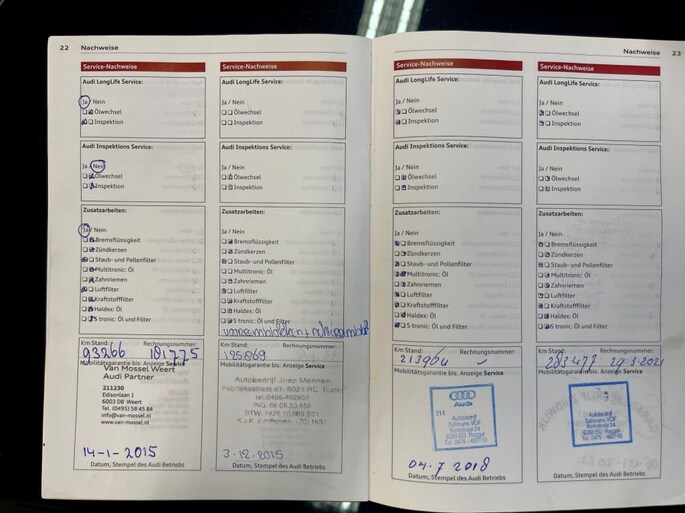 22 Nachweise
Service-Nachweise
Audi LongLife Service:
Ja / Nein
Ölwechsel
Inspektion
Audi Inspektions Service:
Ja / Nein
Ölwechsel
Inspektion
Zusatzarbeiten:
Ja / Nein
Bremsflüssigkeit
Zündkerzen
Staub- und Pollenfilter
Multitronic: Öl
Zahnriemen
Luftfilter
Kraftstofffilter
Haldex: Öl
S tronic: Öl und Filter
Km Stand: Rechnungsnummer:
93266 181775
Mobilitätsgarantie bis: Anzeige Service
Van Mossel Weert
Audi Partner
211230
Edisonlaan 1
6003 DB Weert
Tel. (0495) 58 45 84
info@van-mossel.nl
www.van-mossel.nl
14-1-2015
Datum, Stempel des Audi Betriebs
Service-Nachweise
Audi LongLife Service:
Ja / Nein
Ölwechsel
Inspektion
Audi Inspektions Service:
Ja / Nein
Ölwechsel
Inspektion
Zusatzarbeiten:
Ja / Nein
Bremsflüssigkeit
Zündkerzen
Staub- und Pollenfilter
Multitronic: Öl
Zahnriemen
Luftfilter
Kraftstofffilter
Haldex: Öl
S tronic: Öl und Filter
Km Stand: Rechnungsnummer:
125869
Mobilitätsgarantie bis: Anzeige Service
Autobedrijf Joep Mennen
3-12-2015
Datum, Stempel des Audi Betriebs
Nachweise 23
Service-Nachweise
Audi LongLife Service:
Ja / Nein
Ölwechsel
Inspektion
Audi Inspektions Service:
Ja / Nein
Ölwechsel
Inspektion
Zusatzarbeiten:
Ja / Nein
Bremsflüssigkeit
Zündkerzen
Staub- und Pollenfilter
Multitronic: Öl
Zahnriemen
Luftfilter
Kraftstofffilter
Haldex: Öl
S tronic: Öl und Filter
Km Stand: Rechnungsnummer:
213964
Mobilitätsgarantie bis: Anzeige Service
Audi
211
Autobedrijf
04-7 2018
Datum, Stempel des Audi Betriebs
Service-Nachweise
Audi LongLife Service:
Ja / Nein
Ölwechsel
Inspektion
Audi Inspektions Service:
Ja / Nein
Ölwechsel
Inspektion
Zusatzarbeiten:
Ja / Nein
Bremsflüssigkeit
Zündkerzen
Staub- und Pollenfilter
Multitronic: Öl
Zahnriemen
Luftfilter
Kraftstofffilter
Haldex: Öl
S tronic: Öl und Filter
Km Stand: Rechnungsnummer:
283478 29-3-2021
Mobilitätsgarantie bis: Anzeige Service
Autobedrijf
Datum, Stempel des Audi Betriebs